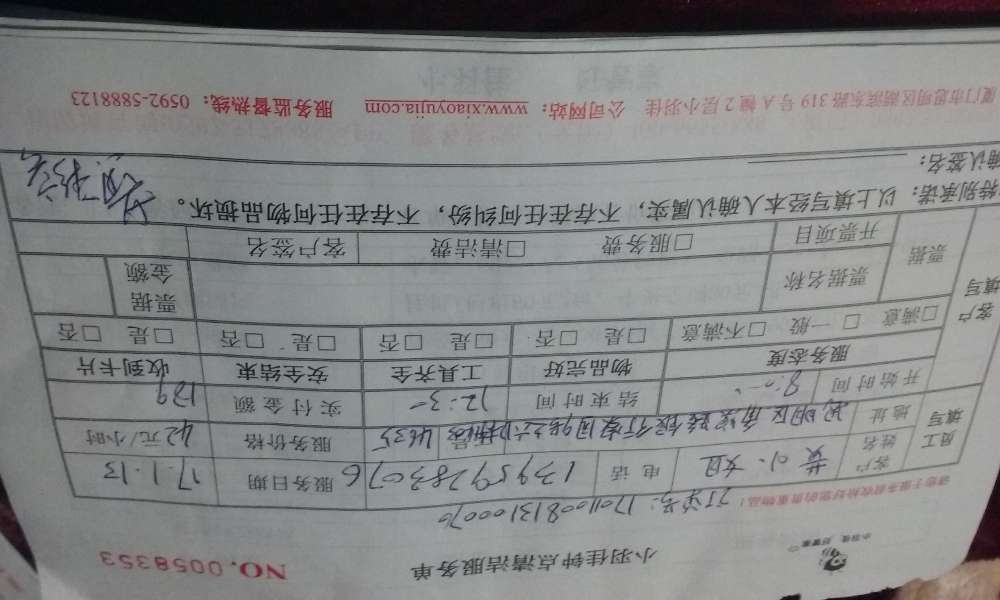 小羽佳钟点清洁服务单
NO.0058353
小羽佳，好管家
订单号：1701100813100070
请您于服务前收拾好您的贵重物品！
员工填写
客户姓名 黄小姐 电话 13959283076 服务日期 17.1.13
地址 思明区 服务价格 42元/小时
开始时间 8:00 结束时间 12:30 实付金额 189
客户填写
服务态度 物品完好 工具齐全 安全结束 收到卡片
□满意 □一般 □不满意 □是 □否 □是 □否 □是 □否 □是 □否
票据 票据名称 票据金额
开票项目 □服务费 □清洁费 客户签名
特别承诺：以上填写经本人确认属实，不存在任何纠纷，不存在任何物品损坏。
确认签名：
厦门市思明区湖滨东路319号A幢2层小羽佳 公司网站：www.xiaoyujia.com 服务监督热线：0592-5888123